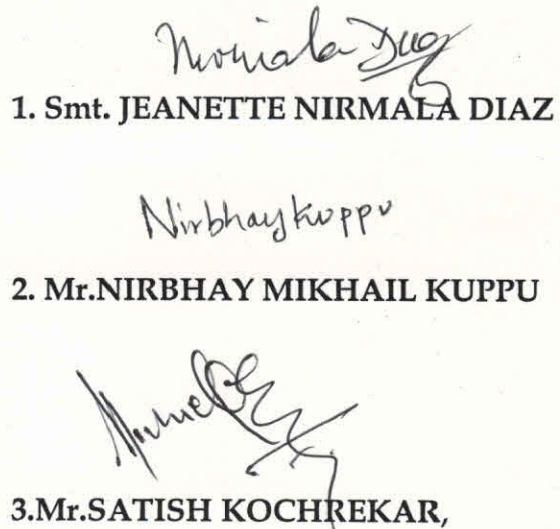 Nirmala Diaz
1. Smt. JEANETTE NIRMALA DIAZ
Nirbhay Kuppu
2. Mr.NIRBHAY MIKHAIL KUPPU
3.Mr.SATISH KOCHREKAR,